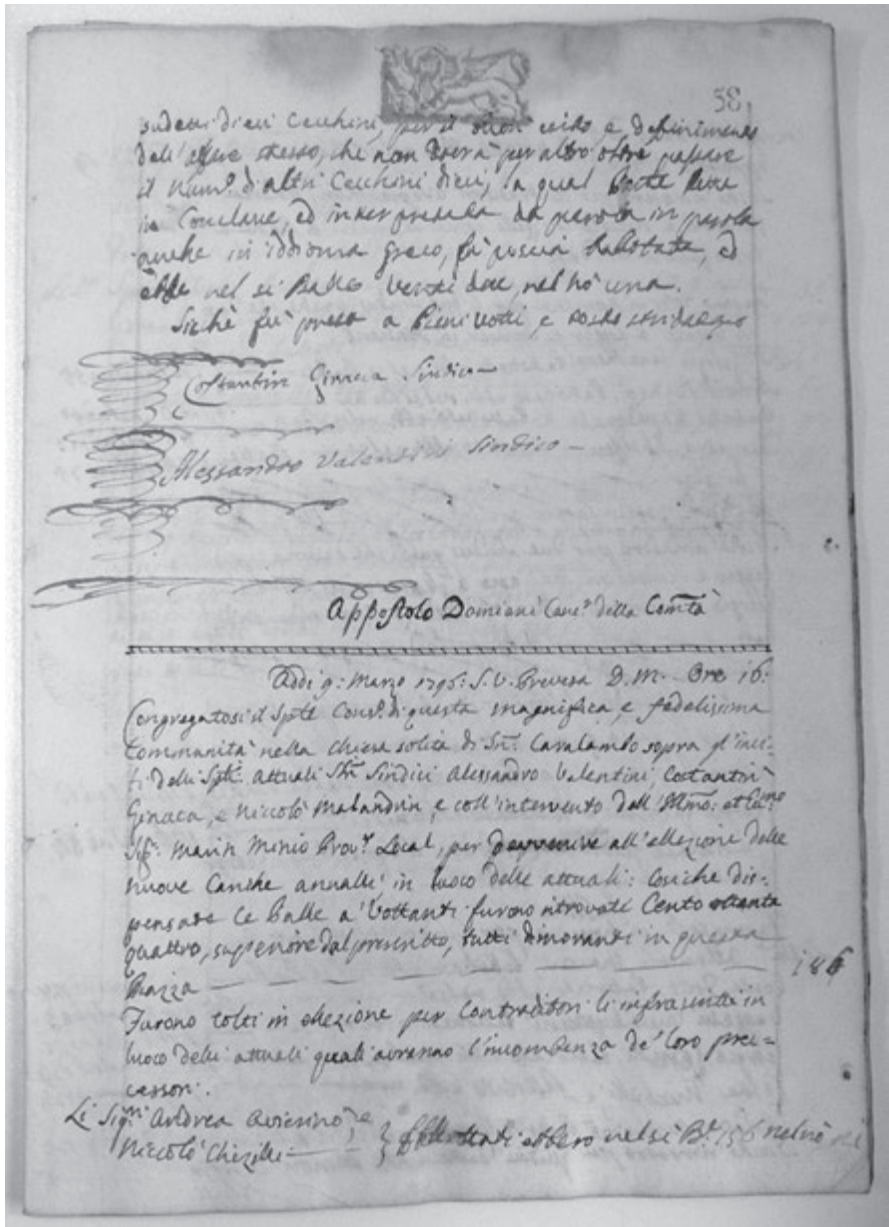 58
sudetti dieci Cecchini, per il buon esito e definimento
dell'affare stesso, che non doverà per altro oltre passare
il num.º d'altri Cecchini dieci, la qual Parte letta
in Conclave, ed interpretata da parola in parola
anche in iddioma greco, fù poscia balotata, ed
ebbe nel si Balle venti due, nel nò una.
Sichè fù presa a Pieni votti e
Costantin Ginaca Sindico
Alessandro Valentini Sindico
Appostolo Domiani Canc.º della Com̃tà
Addi 9: Marzo 1796: S.V. Prevesa D.M. Ore 16:
Congregatosi il Sp̃tt Cons.º di questa magnifica, e fedelissima
Communità nella chiesa solita di Sñ. Caralambo sopra gl'inci-
ti delli Sp̃ti. attuali Sig̃ri Sindici Alessandro Valentini, Costantin
Ginaca, e Niccolò Malandrin, e coll'intervento dell'Ill̃mo:
Sig̃. Marin Minio Prov.r Local, per devenire all'ellezione delle
nuove Cariche annalli in luoco delle attuali: Cosiche dis-
pensate le Balle a' Vottanti furono ritrovati Cento ottanta
quattro, superiore dal prescritto, tutti dimoranti in questa
Piazza 184
Furono tolti in elezione per Contraditori li infrascritti in
luoco delli attuali quali averanno l'incombenza de' loro prec-
cessori.
Li Sig.ri Andrea Avierino, e
Niccolò ebbero nel si B.e 156 nel nò